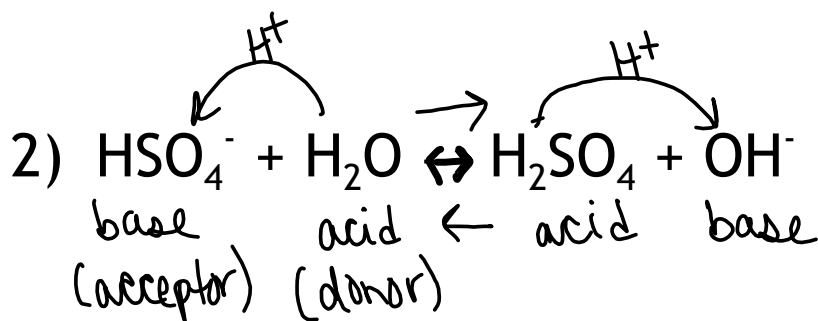 H⁺ H⁺
2) HSO₄⁻ + H₂O ↔ H₂SO₄ + OH⁻
base acid ← acid base
(acceptor) (donor)